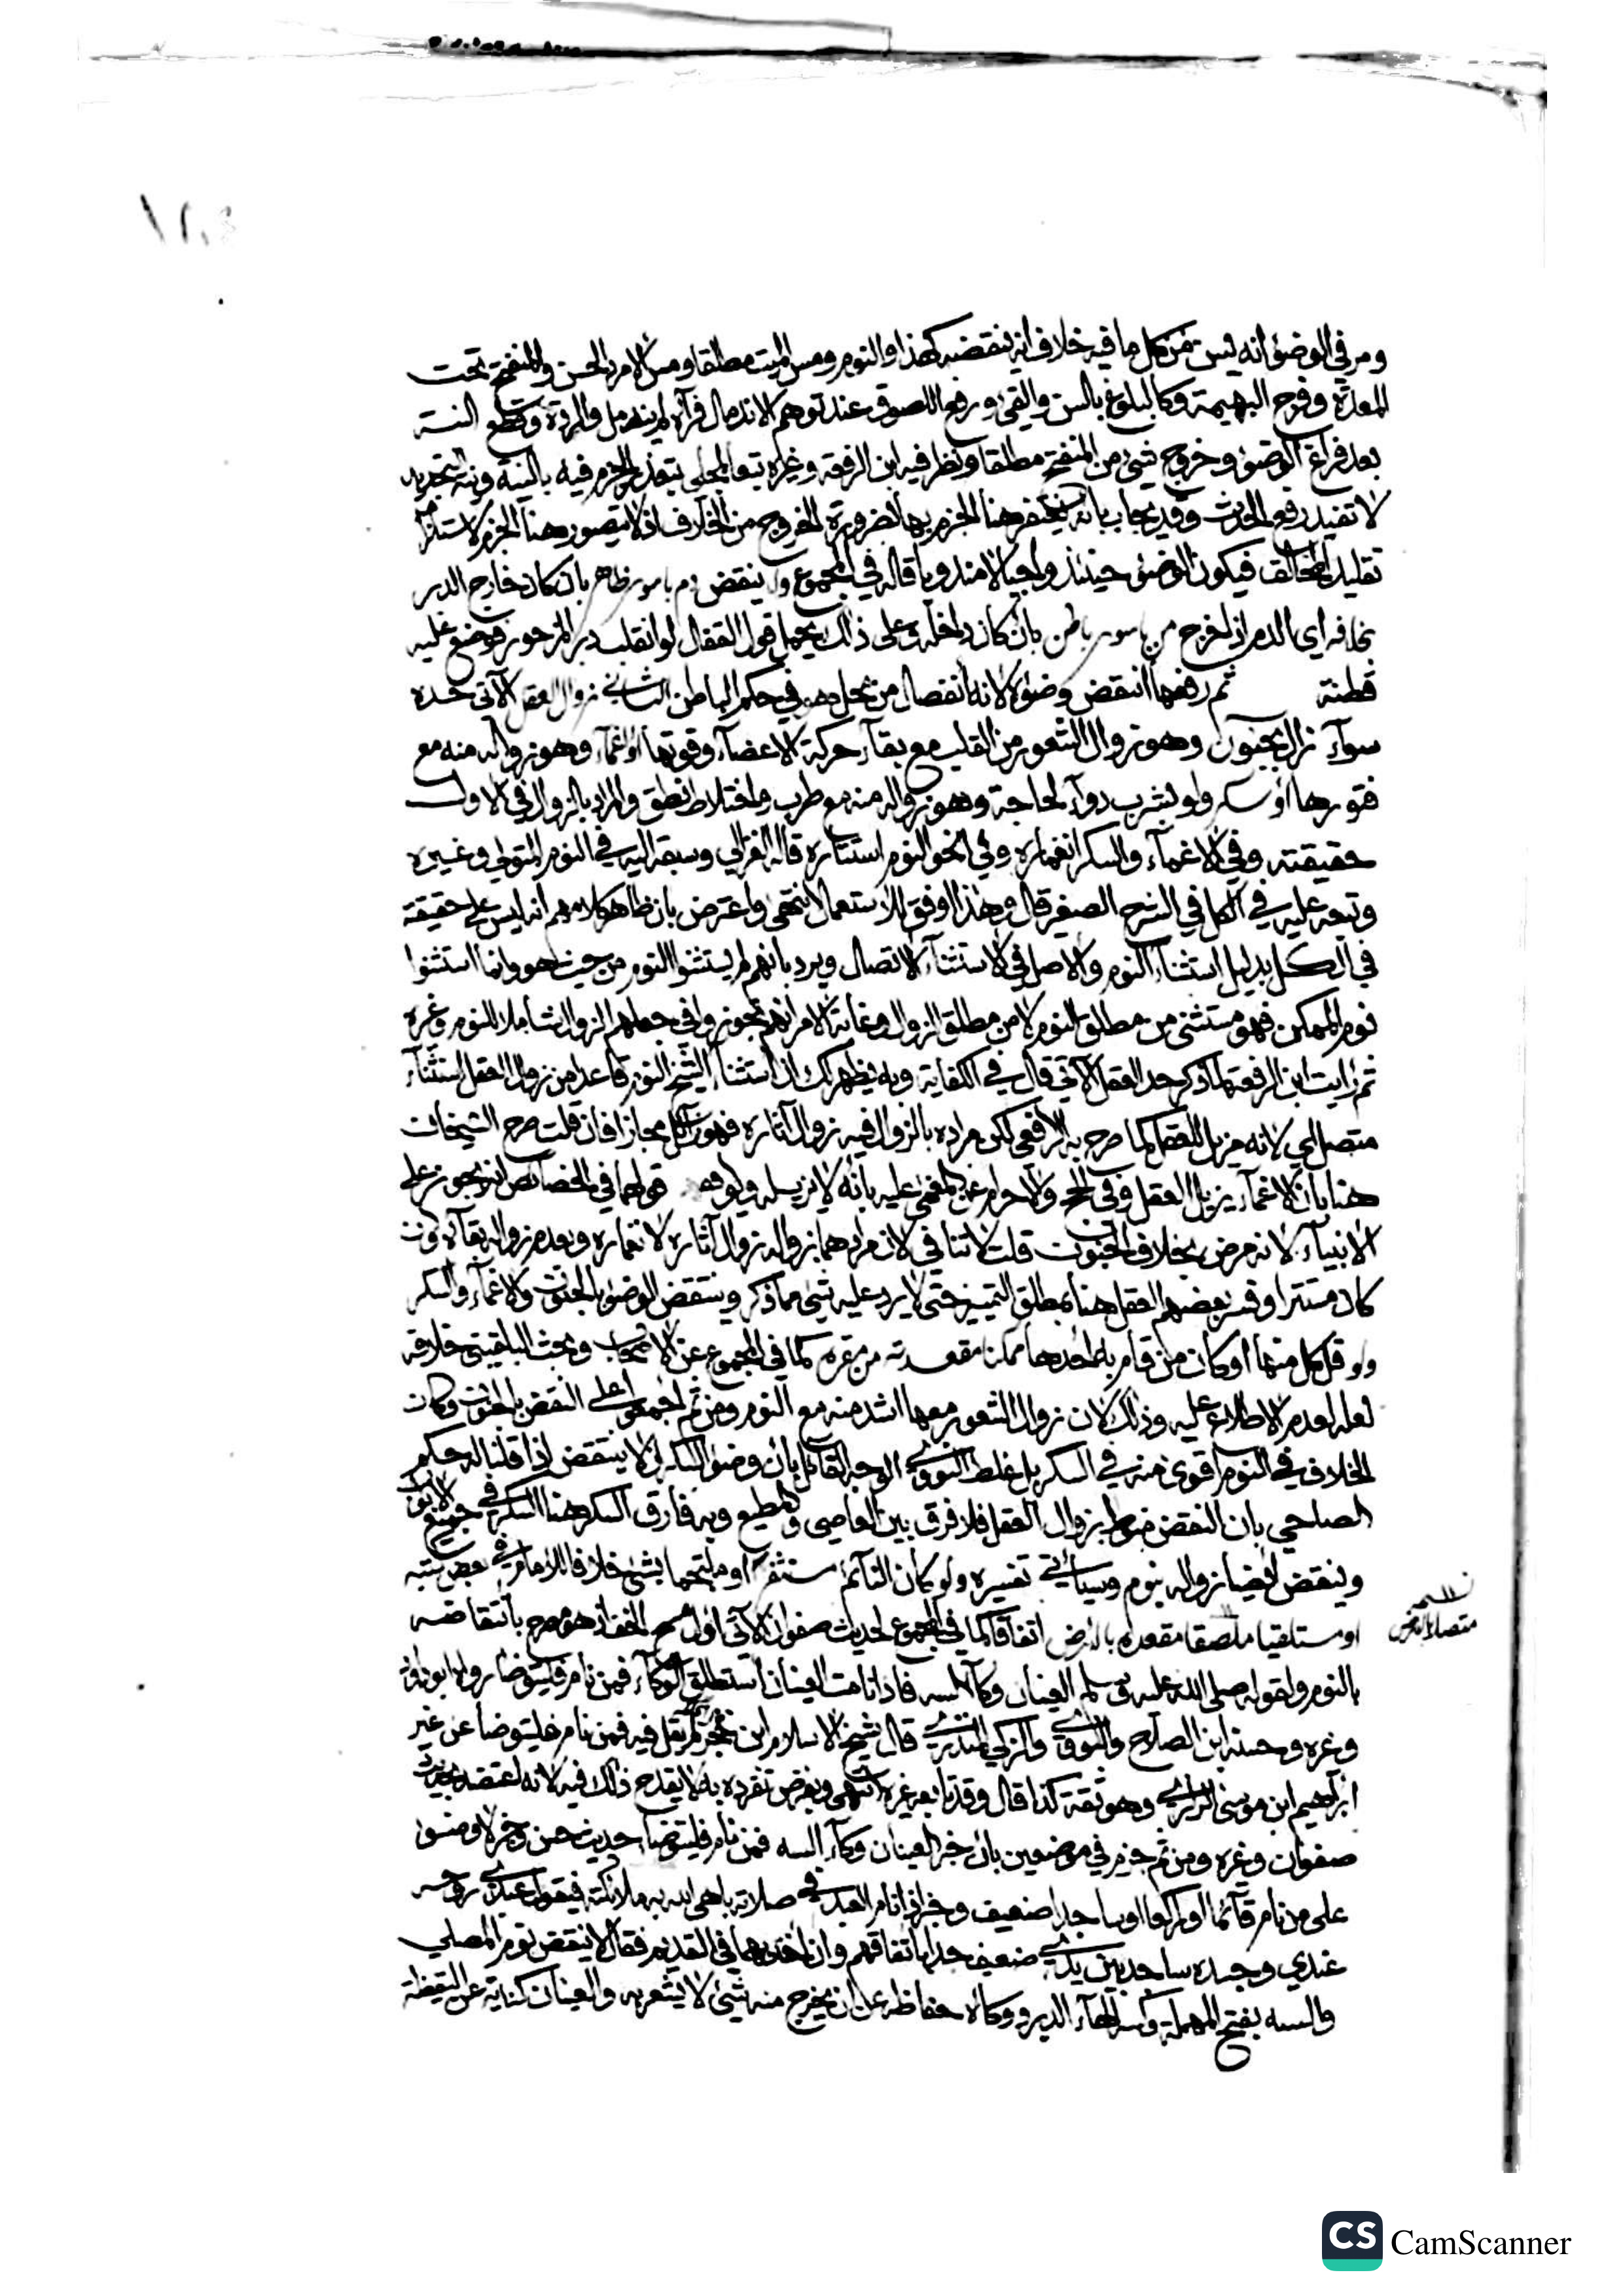 ومر في الوضوء انه ليس من كل ما فيه خلاف انه ينقضه كهذا والنوم ومس الميت مطلقا ومس الامرد الحسن والمنفتح تحت
المعدة وفرج البهيمة وكالبلوغ بالسن والقيء ورفع اللصوق عند توهم الاندمال فرآه لم يندمل والردة وقطع النية
بعد فراغ الوضوء وخروج شيء من المنفتح مطلقا ونظر فيه ابن الرفعة وغيره تبعا للمحلي بتعذر الجزم فيه بالنية ونية التجديد
لا تفيد رفع الحدث وقد يجاب بانه يغتفر هنا الجزم بها لضرورة الخروج من الخلاف اذ لا يتصور هنا الجزم
تقليد المخالف فيكون الوضوء حينئذ واجبا لا مندوبا قاله في المجموع ولا ينقض دم باسور ظاهر بان كان خارج الدبر
بخلافه اي الدم ان خرج من باسور باطن بان كان داخله وعلى ذلك يحمل قول القفال لو انقلب دبر المزحور فوضع عليه
قطنة ثم رفعها انتقض وضوءه لانه انفصال من محل هو في حكم الباطن الثاني زوال العقل الآتي حده
سواء زال بجنون وهو زوال الشعور من القلب مع بقاء حركة الاعضاء وقوتها او اغماء وهو زواله منه مع
فتورها او سكر ولو بشرب دواء لحاجة وهو زواله منه مع طرب واختلاط نطق والمراد بالزوال في الاول
حقيقته وفي الاغماء والسكر انغماره وفي نحو النوم استتاره قاله الغزالي وسبقه اليه في النوم المتولي وغيره
وتبعه عليه في الكل في الشرح الصغير قال وهذا اوفق للاستعمال انتهى واعترض بان ظاهر كلامهم انه ليس على حقيقته
في الكل بدليل استثناء النوم والاصل في الاستثناء الاتصال ويرد بانهم لم يستثنوا النوم من حيث هو وانما استثنوا
نوم الممكن فهو مستثنى من مطلق النوم لا من مطلق الزوال وغاية الامر انهم تجوزوا في جعلهم الزوال شاملا للنوم وغيره
ثم رايت ابن الرفعة لما ذكر حد العقل الآتي قال في الكفاية وبه يظهر لك ان استثناء الشيخ النوم قاعدا من زوال العقل استثناء
متصل اي لانه مزيل للعقل كما صرح به الرافعي لكن مراده بالزوال فيه زوال آثاره فهو مجازا فان قلت صرح الشيخان
هنا بان الاغماء يزيل العقل وفي الحج والاحرام عن المغمى عليه بانه لا يزيله قولهما في الخصائص انه يجوز على
الانبياء لانه مرض بخلاف الجنون قلت لا تنافي لان مرادهما بزواله زوال آثاره لانغماره وبعدم زواله بقاء ذاته وان
كان مستترا وفسر بعضهم العقل هنا بمطلق التمييز حتى لا يرد عليه شيء مما ذكر وينتقض الوضوء بالجنون والاغماء والسكر
ولو قل كل منها او كان من قام به احدها ممكنا مقعدته من مقره كما في المجموع عن الاصحاب وبحث البلقيني خلافه
لعله لعدم الاطلاع عليه وذلك لان زوال الشعور معها اشد منه مع النوم ومن ثم اجمعوا على النقض بالجنون وكان
الخلاف في النوم اقوى منه في السكر بل غلط النووي الوجه القائل بان وضوء السكران لا ينتقض اذا قلنا له حكم
الصاحي بان النقض منوط بزوال العقل فلا فرق بين العاصي والمطيع وبه فارق السكر هنا السكر في جميع الابواب
وينقض ايضا زواله بنوم وسياتي تفسيره ولو كان النائم مستثفرا او ملتجما بشيء خلافا للامام في بعض كتبه
او مستلقيا ملصقا مقعده بالارض اتفاقا كما في المجموع لحديث صفوان الآتي اول مسح الخف اذ هو مصرح بانتقاضه
بالنوم ولقوله صلى الله عليه وسلم العينان وكاء السه فاذا نامت العينان استطلق الوكاء فمن نام فليتوضا رواه ابو داود
وغيره وحسنه ابن الصلاح والنووي والزكي المنذري قال شيخ الاسلام ابن حجر لم يقل فيه فمن نام فليتوضا عن غير
ابراهيم ابن موسى الرازي وهو ثقة كذا قال وقد تابعه غيره انتهى وبفرض تفرده به لا يقدح ذلك فيه لانه اعتضد بحديث
صفوان وغيره ومن ثم جزم في موضعين بان خبر العينان وكاء السه فمن نام فليتوضا حديث حسن وخبر لا وضوء
على من نام قائما او راكعا او ساجدا ضعيف وخبر اذا نام العبد في صلاته باهى الله به ملائكته فيقول عبدي روحه
عندي وجسده ساجد بين يدي ضعيف جدا باتفاقهم وان اخذ بهما في القديم فقال لا ينقض نوم المصلي
والسه بفتح المهملة وكسر الهاء الدبر ووكاؤه حفاظه عن ان يخرج منه شيء لا يشعر به والعينان كناية عن اليقظة
متصلا بالارض
CS CamScanner